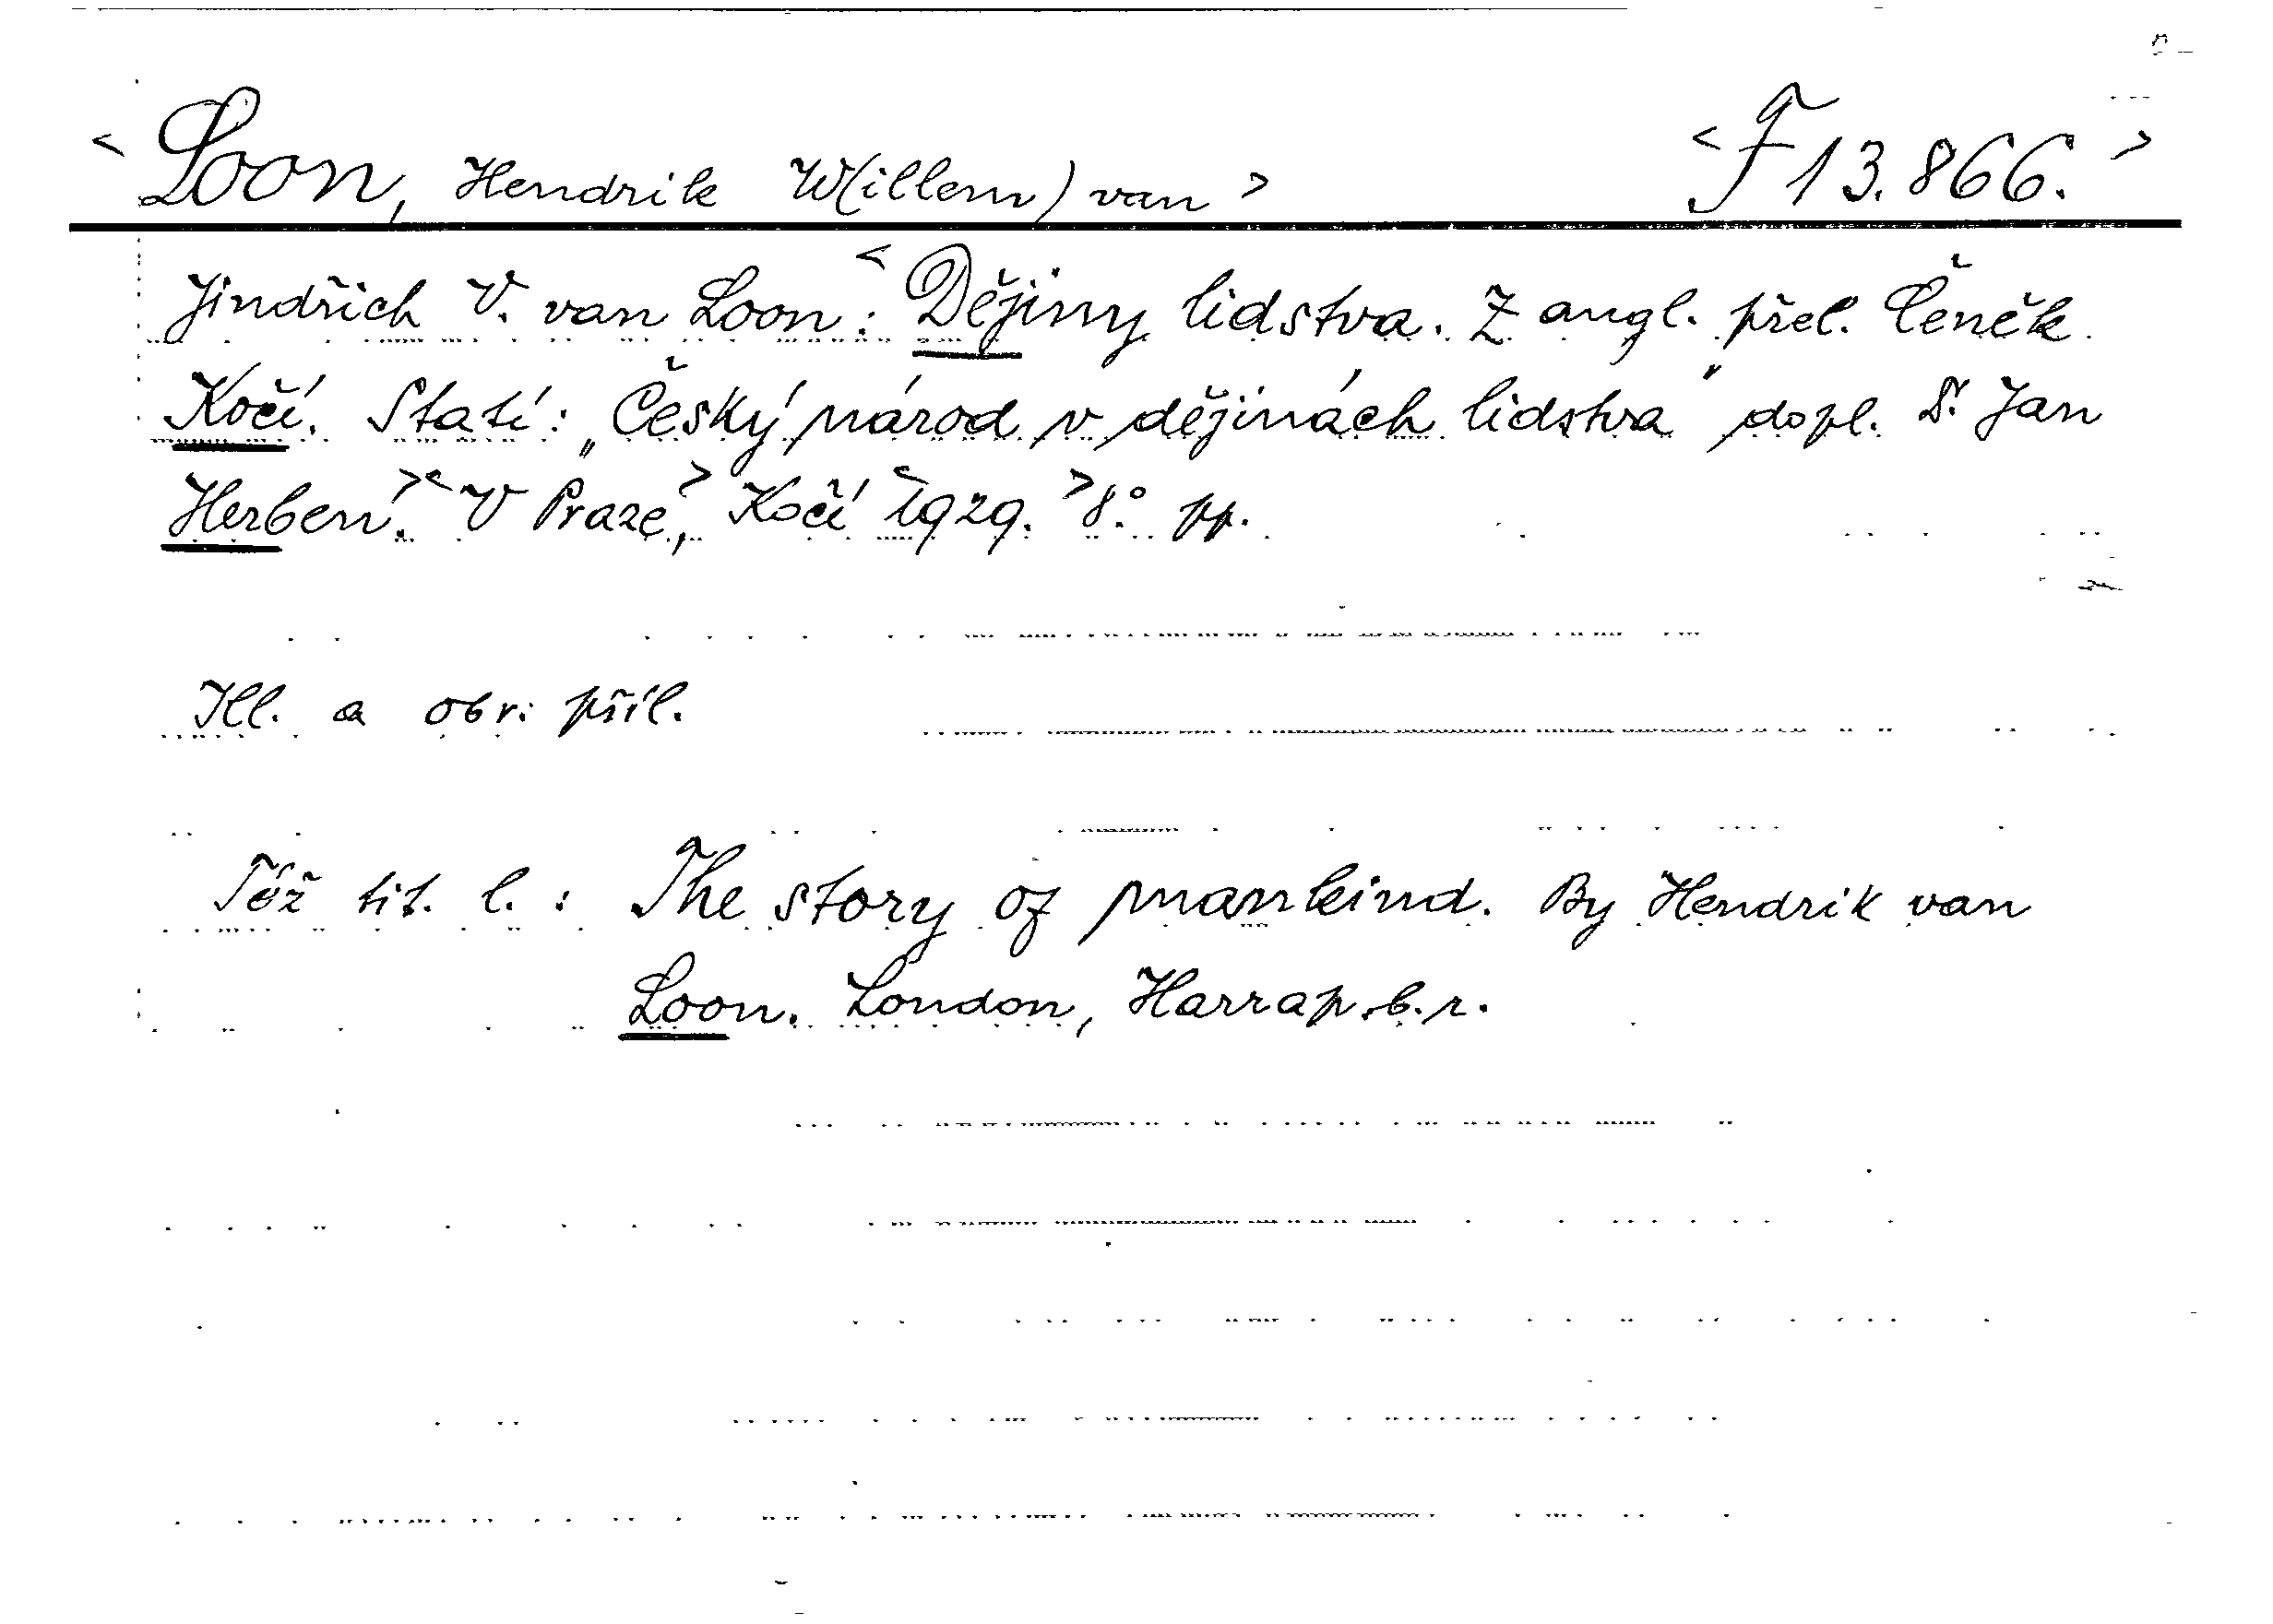 < Loon, Hendrik W(illem) van > < F 13.866. >
Jindřich V. van Loon: < Dějiny lidstva. Z angl. přel. Čeněk
Kočí. Statí: „Český národ v dějinách lidstva" dopl. Dr. Jan
Herben. > < V Praze, > Kočí < 1929. > 8.° pp.
Ill. a obr. příl.
Též tit. l.: The story of mankind. By Hendrik van
Loon. London, Harrap b. r.